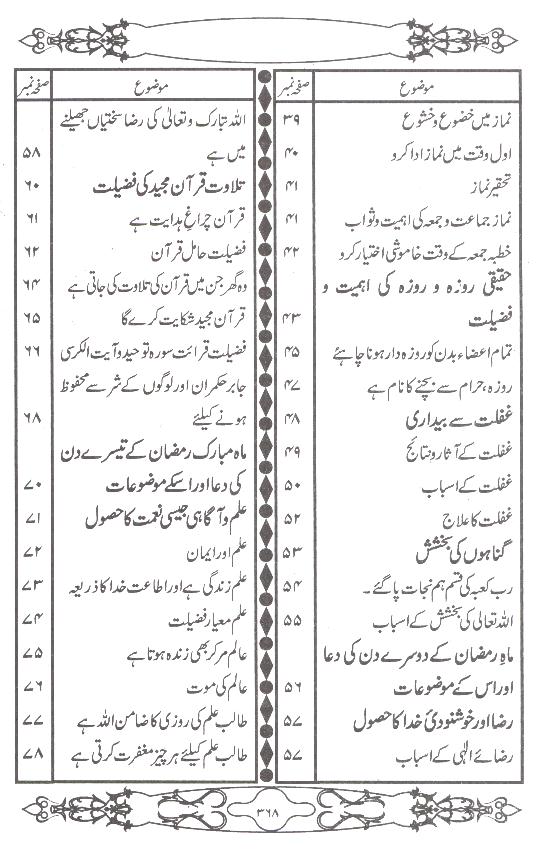 موضوع صفحہ نمبر
نماز میں خضوع و خشوع ۳۹
اول وقت میں نماز ادا کرو ۴۰
تحقیر نماز ۴۱
نماز جماعت و جمعہ کی اہمیت و ثواب ۴۱
خطبہ جمعہ کے وقت خاموشی اختیار کرو ۴۲
حقیقی روزہ و روزہ کی اہمیت و
فضیلت ۴۳
تمام اعضاء بدن کو روزہ دار ہونا چاہئے ۴۵
روزہ، حرام سے بچنے کا نام ہے ۴۷
غفلت سے بیداری ۴۸
غفلت کے آثار و نتائج ۴۹
غفلت کے اسباب ۵۰
غفلت کا علاج ۵۲
گناہوں کی بخشش ۵۳
رب کعبہ کی قسم ہم نجات پا گئے۔ ۵۴
اللہ تعالی کی بخشش کے اسباب ۵۵
ماہ رمضان کے دوسرے دن کی دعا
اور اس کے موضوعات ۵۶
رضا اور خوشنودئ خدا کا حصول ۵۷
رضائے الٰہی کے اسباب ۵۷
موضوع صفحہ نمبر
اللہ تبارک و تعالیٰ کی رضا سختیاں جھیلنے
میں ہے ۵۸
تلاوت قرآن مجید کی فضیلت ۶۰
قرآن چراغ ہدایت ہے ۶۱
فضیلت حامل قرآن ۶۲
وہ گھر جن میں قرآن کی تلاوت کی جاتی ہے ۶۴
قرآن مجید شکایت کرے گا ۶۵
فضیلت قرائت سورہ توحید و آیت الکرسی ۶۶
جابر حکمران اور لوگوں کے شر سے محفوظ
ہونے کیلئے ۶۸
ماہ مبارک رمضان کے تیسرے دن
کی دعا اور اسکے موضوعات ۷۰
علم و آگاہی جیسی نعمت کا حصول ۷۱
علم اور ایمان ۷۲
علم زندگی ہے اور اطاعت خدا کا ذریعہ ۷۳
علم معیار فضیلت ۷۴
عالم مر کر بھی زندہ ہوتا ہے ۷۵
عالم کی موت ۷۶
طالب علم کی روزی کا ضامن اللہ ہے ۷۷
طالب علم کیلئے ہر چیز مغفرت کرتی ہے ۷۸
۳۶۸